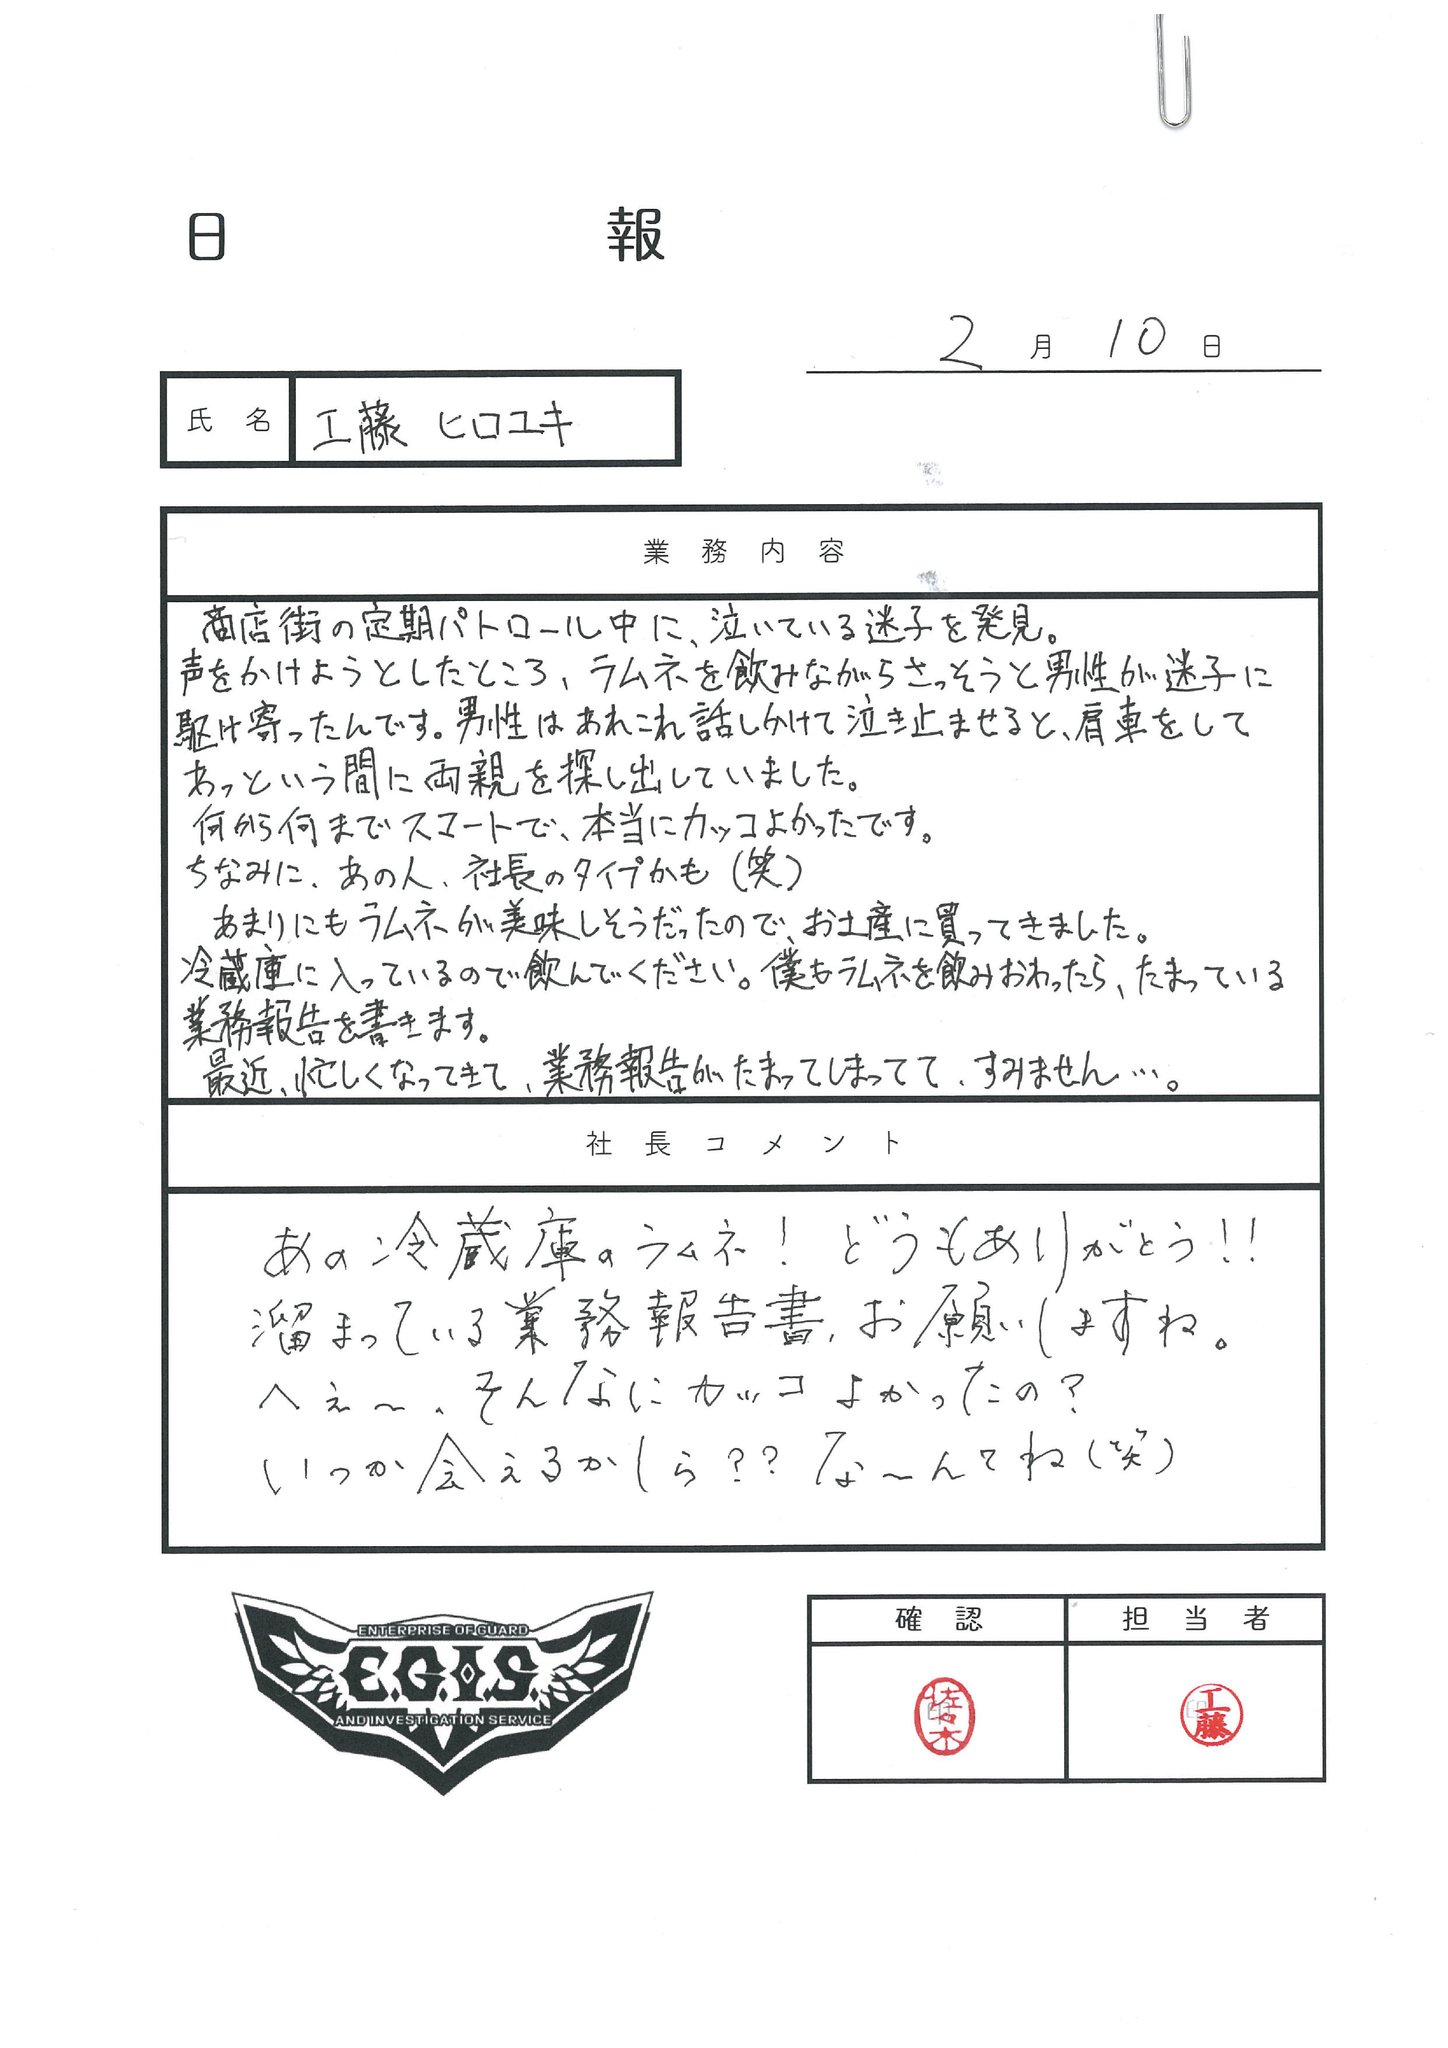 日報
2月10日
氏名 工藤 ヒロユキ
業務内容
商店街の定期パトロール中に、泣いている迷子を発見。
声をかけようとしたところ、ラムネを飲みながらさっそうと男性が迷子に
駆け寄ったんです。男性はあれこれ話しかけて泣き止ませると、肩車をして
あっという間に両親を探し出していました。
何から何までスマートで、本当にカッコよかったです。
ちなみに、あの人、社長のタイプかも(笑)
あまりにもラムネが美味しそうだったので、お土産に買ってきました。
冷蔵庫に入っているので飲んでください。僕もラムネを飲みおわったら、たまっている
業務報告を書きます。
最近、忙しくなってきて、業務報告がたまってしまってて、すみません…。
社長コメント
あの冷蔵庫のラムネ!どうもありがとう!!
溜まっている業務報告書、お願いしますね。
へぇ〜、そんなにカッコよかったの?
いつか会えるかしら??な〜んてね(笑)
ENTERPRISE OF GUARD
E.G.I.S.
AND INVESTIGATION SERVICE
確認 担当者
印 佐々木 印 工藤